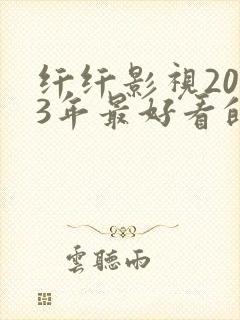 纤纤影視20
3年最好看的
雲聽雨